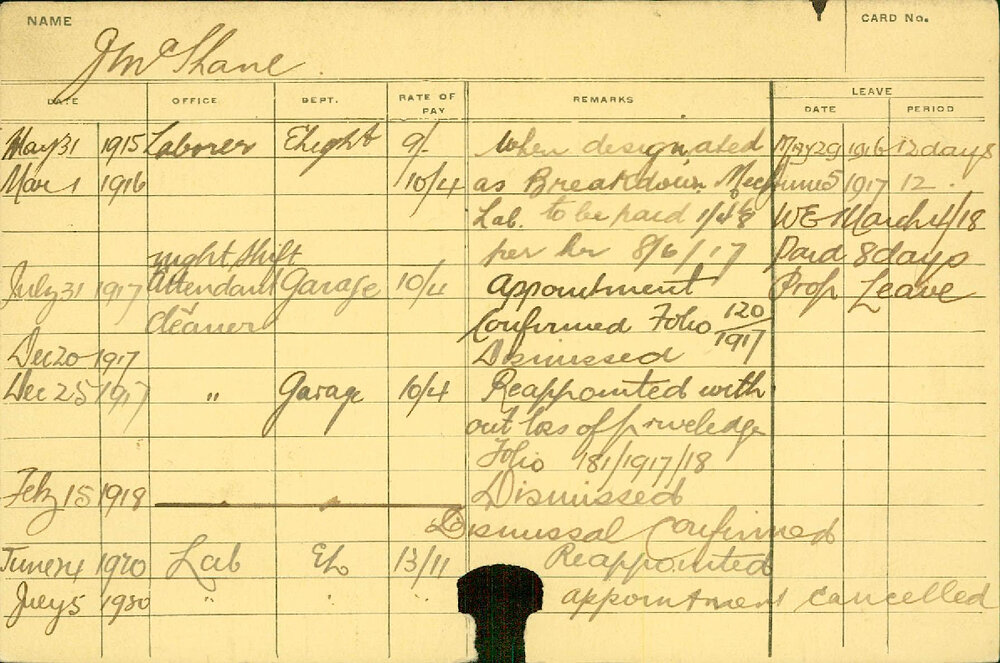 NAME CARD No.
J McShane.
DATE OFFICE. DEPT. RATE OF PAY REMARKS LEAVE
DATE PERIOD
May 31 1915 Laborer Elight 9/- When designated May 29 1916 12 days
Mar 1 1916 10/4 as Breakdown Mec June 5 1917 12.
Lab. to be paid WE March 4/18
night shift per hr 8/6/17 Paid 8 days
July 31 1917 Attendant Garage 10/4 Appointment Prop Leave
Cleaner Confirmed Folio 120/1917
Dec 20 1917 Dismissed
Dec 25 1917 " Garage 10/4 Reappointed with
out loss of priveledge
Folio 181/1917/18
Feby 15 1918 Dismissed
Dismissal Confirmed
June 1920 Lab EL 13/11 Reappointed
July 5 " " " appointment cancelled